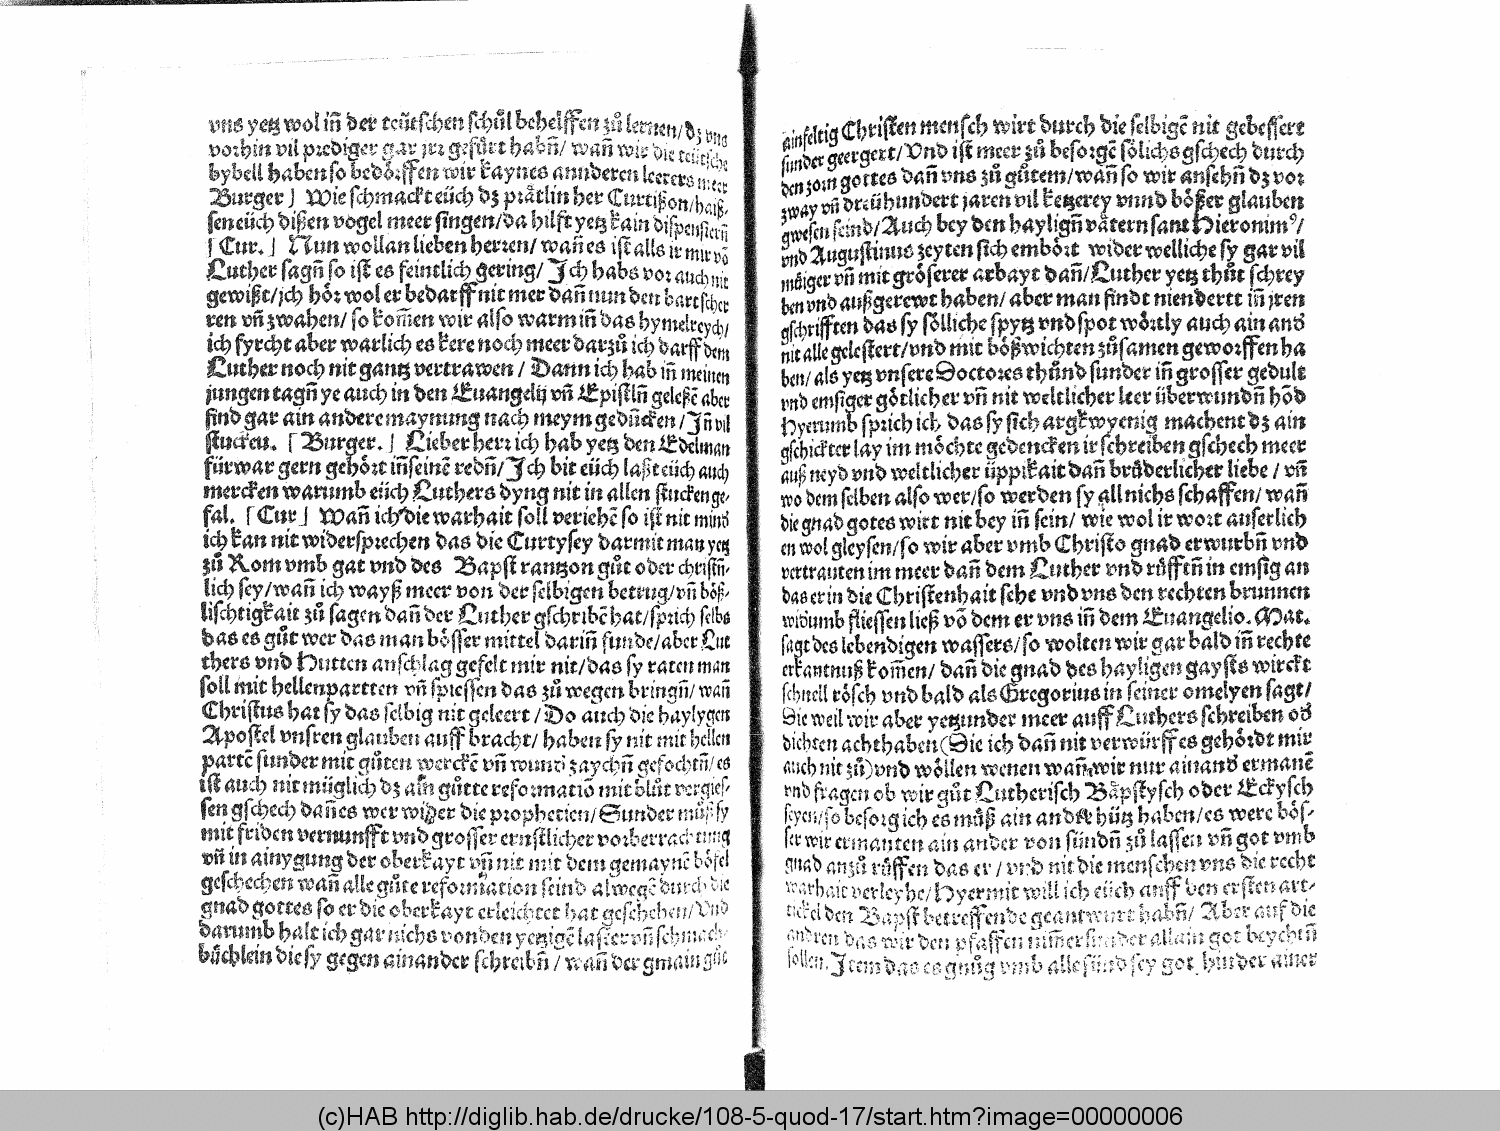 vns yetz wol in̄ der teütschen schůl behelffen zů lernen/dz vns
vorhin vil prediger gar jrr gefürt habn̄/ wan̄ wir die teütsche
bybell haben so bedörffen wir kaynes annderen leerers meer
Burger] Wie schmackt eüch dz prätlin her Curtißon/haiß-
sen eüch dißen vogel meer singen/da hilfft yetz kain dispensiern̄
[Cur.] Nun wollan lieben herren/ wan̄ es ist alls ir mir vō
Luther sagn̄ so ist es feintlich gering/ Ich habs vor auch nit
gewißt/jch hör wol er bedarff nit mer dan̄ nun den bart scher
ren vn̄ zwahen/ so kom̄en wir also warm in̄ das hymelreych/
ich fyrcht aber warlich es kere noch meer darzů ich darff dem
Luther noch nit gantz vertrawen / Dann ich hab in̄ meinen
jungen tagn̄ ye auch in den Euangelij vn̄ Epistln̄ geleßē aber
find gar ain andere maynung nach meym gedun̄cken /In̄ vil
stucken. [Burger.] Lieber herr ich hab yetz den Edelman
fürwar gern gehört in̄ seinē redn̄/ Ich bit eüch laßt eüch auch
mercken warumb eüch Luthers dyng nit in allen stucken ge-
fal. [Cur] Wan̄ ich die warhait soll veriehē so ist nit mind̄
ich kan nit widersprechen das die Curtysey darmit man yetz
zů Rom vmb gat vnd des Bapst rantzon gůt oder christn̄-
lich sey/wan̄ ich wayß meer von der selbigen betrug/vn̄ böß-
lischtigkait zů sagen dan̄ der Luther gschribē hat/sprich selbs
das es gůt wer das man bösser mittel darin̄ funde/aber Lut
thers vnd Hutten anschlag gefelt mir nit/das sy raten man
soll mit hellenpartten vn̄ spiessen das zů wegen bringn̄/ wan̄
Christus hat sy das selbig nit geleert /Do auch die haylygen
Apostel vnsren glauben auff bracht/ haben sy nit mit hellen
partē sunder mit gůten werckē vn̄ wund zaychn̄ gefochtn̄/es
ist auch nit müglich dz ain gůtte reformatiō mit blůt vergies-
sen gschech dan̄ es wer wider die prophetien/Sunder můß sy
mit friden vernunfft vnd grosser ernstlicher vorberrachtung
vn̄ in ainygung der oberkayt vn̄ nit mit dem gemaynē böfel
geschechen wan̄ alle gůte reformation seind alwegē durch die
gnad gottes so er die oberkayt erleichtet hat geschehen/Vnd
darumb halt ich gar nichs von den yetzigē laster vn̄ schmach-
bůchlein die sy gegen ainander schreibn̄ / wan̄ der gmain gůt
ainfeltig Christen mensch wirt durch die selbigē nit gebessert
sunder geergert/Vnd ist meer zů besorgē sölichs gschech durch
den zorn gottes dan̄ vns zů gůtem/wan̄ so wir ansehn̄ dz vor
zway vn̄ dreühundert jaren vil ketzerey vnnd bößer glauben
gwesen seind/Auch bey den haylign̄ vätern sant Hieronim⁹/
vnd Augustinus zeyten sich embört wider welliche sy gar vil
můiger vn̄ mit gröserer arbayt dan̄/Luther yetz thůt schrey
ben vnd außgerewt haben/ aber man findt niendertt in̄ jren
gschrifften das sy sölliche spytz vnd spot wörtly auch ain and̄
nit alle gelestert/vnd mit bößwichten zůsamen geworffen ha
ben/ als yetz vnsere Doctores thůnd sunder in̄ grosser gedult
vnd emsiger götlicher vn̄ nit weltlicher leer überwundn̄ hōd
Hyerumb sprich ich das sy sich argkwyenig machent dz ain
gschickter lay im möchte gedencken ir schreiben gschech meer
auß neyd vnd weltlicher üppikait dan̄ brůderlicher liebe / vn̄
wo dem selben also wer/so werden sy all nichs schaffen/ wan̄
die gnad gotes wirt nit bey in̄ sein/ wie wol ir wort auserlich
en wol gleysen/so wir aber vmb Christo gnad erwurbn̄ vnd
vertrauten im meer dan̄ dem Luther vnd růfften̄ in emsig an
das er in die Christenhait sehe vnd vns den rechten brunnen
widumb fliessen ließ vō dem er vns in̄ dem Euangelio. Mat.
sagt des lebendigen wassers/so wolten wir gar bald in̄ rechte
erkantnuß kom̄en/ dan̄ die gnad des hayligen gaysts wirckt
schnell rösch vnd bald als Gregorius in seiner omelyen sagt/
Die weil wir aber yetzunder meer auff Luthers schreiben od̄
dichten acht haben(Die ich dan̄ nit verwürff es gehördt mir
auch nit zů)vnd wöllen wenen wan̄ wir nur ainand̄ ermanē
vnd fragen ob wir gůt Lutherisch Bäpstysch oder Eckysch
seyen/so besorg ich es můß ain ander hütz haben/es were bös-
ser wir ermanten ain ander von sündn̄ zů lassen vn̄ got vmb
gnad anzů růffen das er / vnd nit die menschen vns die recht
warhait verleyhe/Hyermit will ich eüch auff den ersten art-
tickel den Bapst betreffende geantwurt habn̄/ Aber auf die
andren das wir den pfaffen nim̄er sunder allain got beychtn̄
sollen. Item das es gnůg vmb alle sünd sey got hinder ainer
(c)HAB http://diglib.hab.de/drucke/108-5-quod-17/start.htm?image=00000006